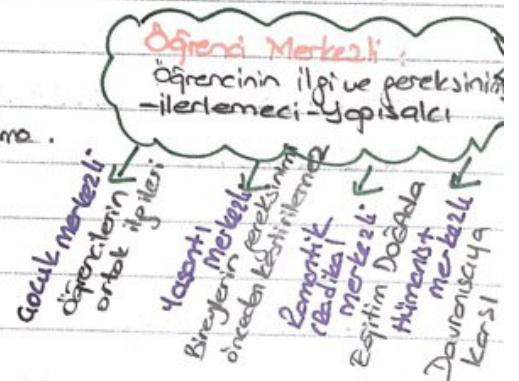 Öğrenci Merkezli :
Öğrencinin ilgi ve gereksinim
-ilerlemeci-Yapısalcı
ma.
Çocuk Merkezli
Öğrencilerin
ortak ilgileri
Yaşantı
Merkezli
Bireylerin gereksinimi
önceden kestirilemez
Romantik
/Radikal
Merkezli
Eğitim Doğada
Hümanist
merkezli
Davranışçıya
karşı